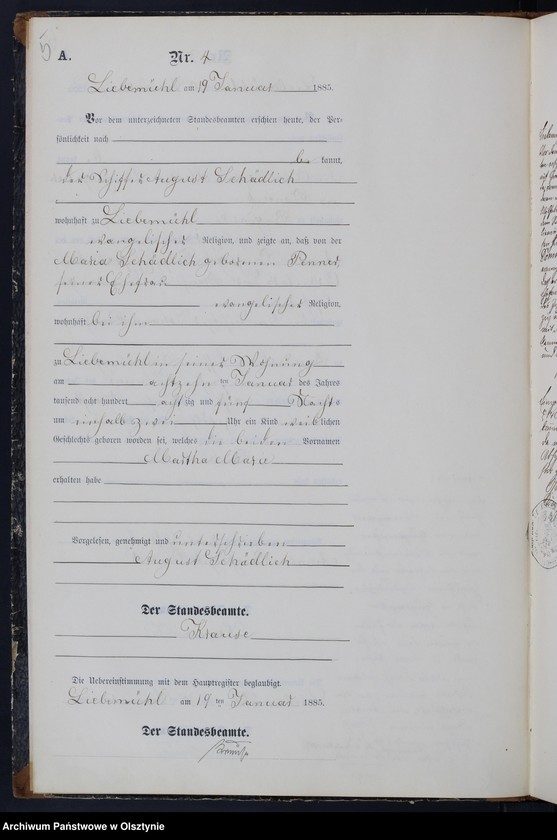 5
A. Nr. 4
Liebemühl am 19 Januar 1885.
Vor dem unterzeichneten Standesbeamten erschien heute, der Per-
sönlichkeit nach
be kannt,
der Schiffer August Schädlich
wohnhaft zu Liebemühl
evangelischer Religion, und zeigte an, daß von der
Maria Schädlich geborenen Penner,
seiner Ehefrau
evangelischer Religion,
wohnhaft bei ihm
zu Liebemühl in seiner Wohnung
am achtzehn ten Januar des Jahres
tausend acht hundert acht zig und fünf Nachts
um einhalb zwei Uhr ein Kind weib lichen
Geschlechts geboren worden sei, welches die beiden Vornamen
Martha Marie
erhalten habe
Vorgelesen, genehmigt und unterschrieben
August Schädlich
Der Standesbeamte.
Krause
Die Uebereinstimmung mit dem Hauptregister beglaubigt.
Liebemühl am 19 ten Januar 1885.
Der Standesbeamte.
Krause
Archiwum Państwowe w Olsztynie